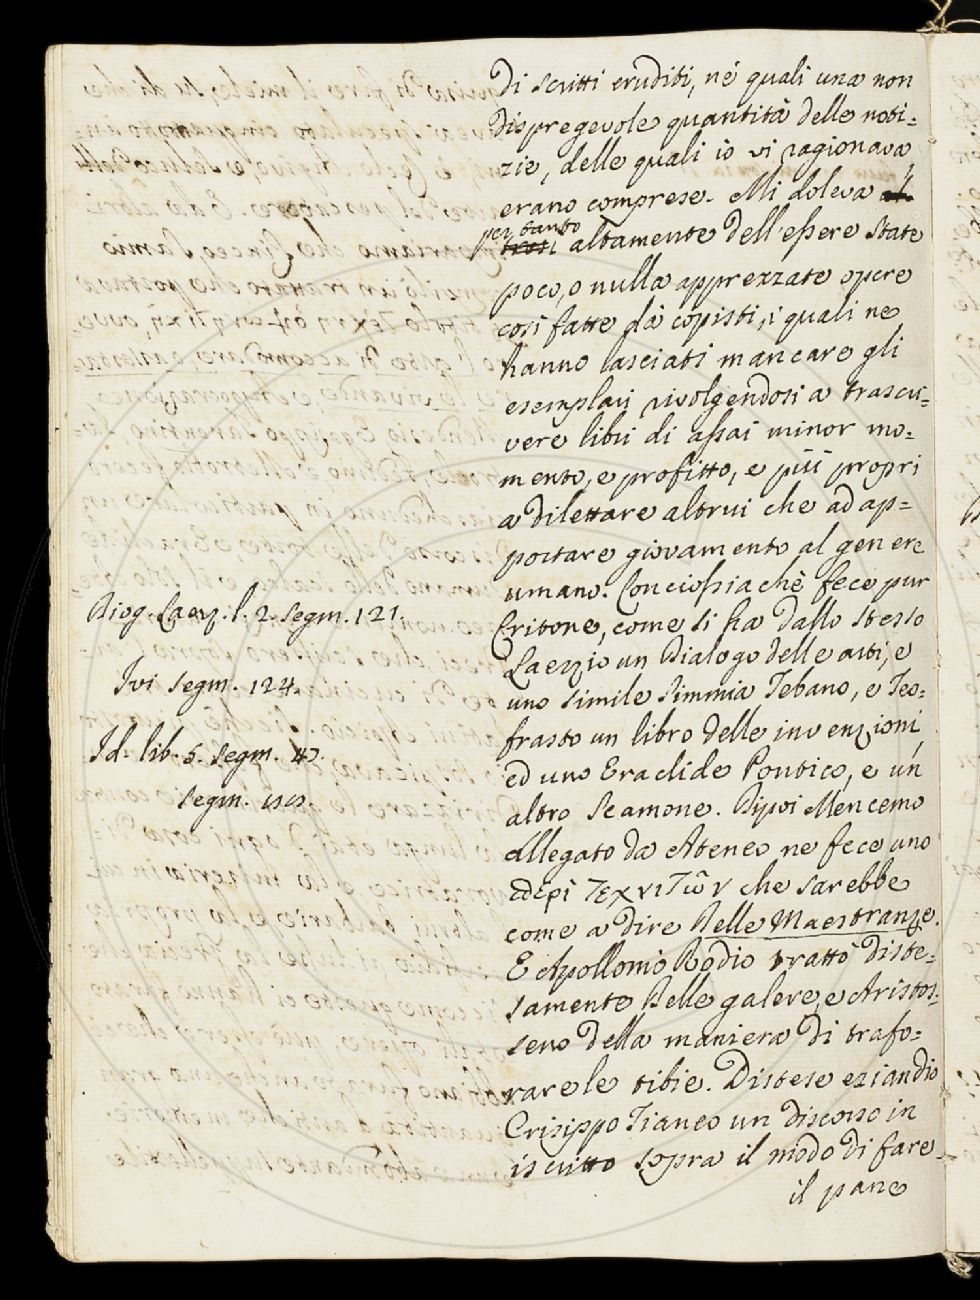 Di scritti eruditi, né quali una non
dispregevole quantità delle noti=
zie, delle quali io vi ragionava,
erano comprese. Mi doleva
per tanto
altamente dell'essere state
poco, o nulla apprezzate opere
così fatte da copisti, i quali ne
hanno lasciati mancare gli
esemplari rivolgendosi a trascri=
vere libri di assai minor mo=
mento, e profitto, e più propri
a dilettare altrui che ad ap=
portare giovamento al genere
umano. Conciossiachè fece pur
Critone, come si ha dallo stesso
Diog. Laerz. l. 2. segm. 121.
Laerzio un Dialogo delle arti, e
uno simile Simmia Tebano, e Teo=
Ivi segm. 124.
frasto un libro delle invenzioni,
Id. lib. 5. segm. 47.
ed uno Eraclide Pontico, e un
segm.
altro Stamone. Dipoi Mencemo
allegato da Ateneo ne fece uno
περὶ τεχνιτῶν che sarebbe
come a dire Delle Maestranze.
E Apollonio Rodio trattò diste=
samente Delle galere, e Aristos=
seno della maniera di trafo=
rare le tibie. Distese eziandio
Crisippo Tianeo un discorso in
iscritto sopra il modo di fare
il pane